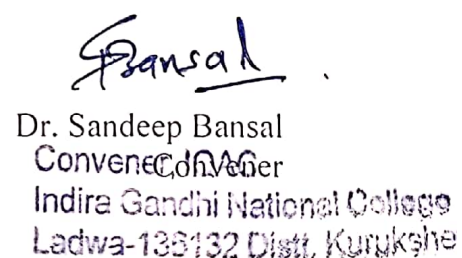 SBansal
Dr. Sandeep Bansal
Convener
Convener IQAC
Indira Gandhi National College
Ladwa-136132 Distt. Kurukshe